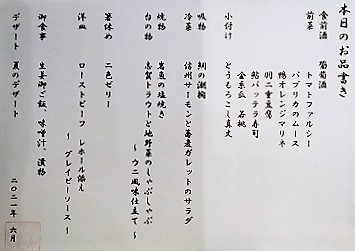 本日のお品書き
食前酒 葡萄酒
前菜 トマトファルシー
パプリカのムース
鴨オレンジマリネ
羽二重豆腐
鮎バッテラ寿司
金糸瓜 若桃
小付け とうもろこし真丈
吸物 鯛の潮椀
冷菜 信州サーモンと蕎麦ガレットのサラダ
焼物 岩魚の塩焼き
台の物 志賀トラウトと地野菜のしゃぶしゃぶ
~ウニ風味仕立て~
箸休め 二色ゼリー
洋皿 ローストビーフ レホール添え
~グレイビーソース~
御食事 生姜御ご飯、味噌汁、漬物
デザート 夏のデザート
二〇二一年 六月